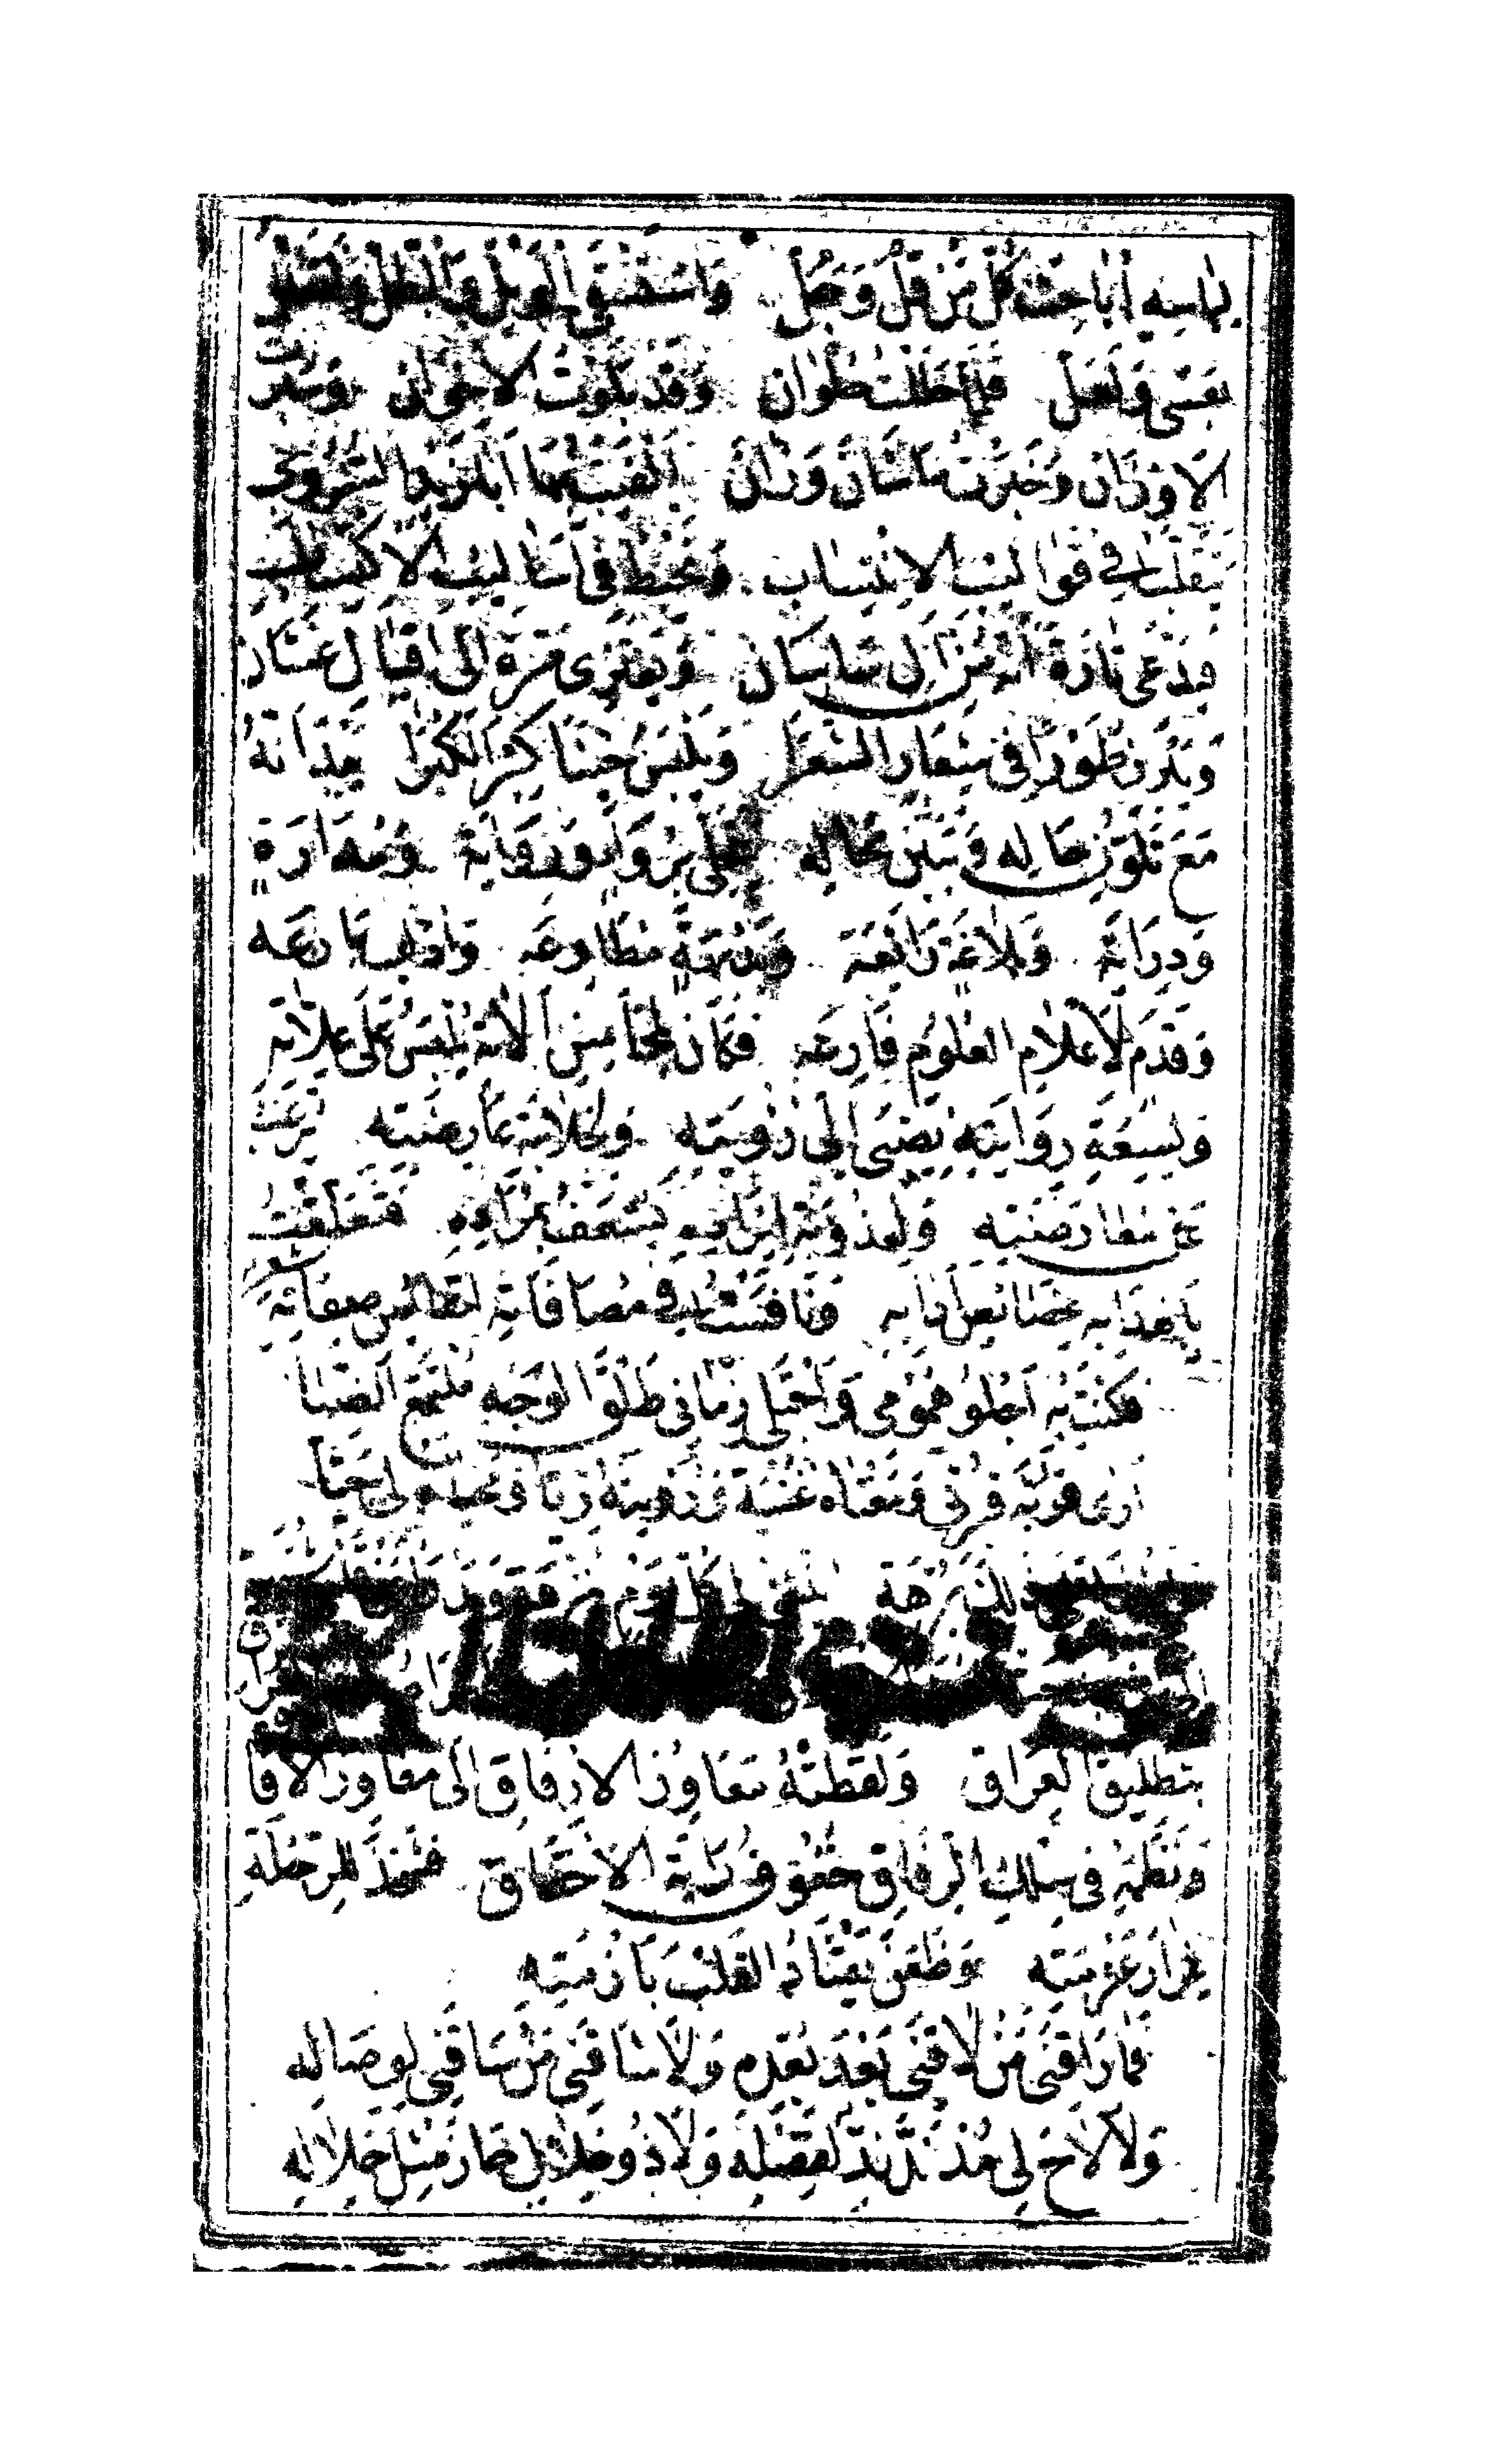 لباسه أباحث كل من قل وجل واستسقي الوبل والطل وأتعلل
بعسى ولعل فلما حللت حلوان وقد بلوت الاخوان وسبرت
الاوزان وخبرت ما شان وزان ألفيت بها أبا زيد السروجي
يتقلب في قوالب الانتساب ويخبط في أساليب الاكتساب
فيدعي تارة أنه من آل ساسان ويعتزي مرة إلى أقيال غسان
ويبرز طورا في شعار الشعراء ويلبس حينا كبر الكبرا بيد أنه
مع تلون حاله وتبين محاله يتحلى برواء ورواية ومداراة
ودراية وبلاغة رائعة وبديهة مطاوعه وآداب بارعه
وقدم لأعلام العلوم فارعه فكان لمحاسن آلاته يلبس على علاته
ولسعة روايته يصبى إلى رؤيته ولخلابة عارضته يرغب
عن معارضته ولعذوبة ايراده يسعف بمراده فتعلقت
بأهدابه لخصائص آدابه ونافست في مصافاته لنفائس صفاته
فكنت به أجلو همومي وأجتلي زماني طلق الوجه ملتمع الضيا
أرى قربه قربى ومغناه غنية ورؤيته ريا ومحياه لي حيا
بتطليق العراق ولفظته معاوز الارفاق إلى مفاوز الافا
ونظمه في سلك الرفاق خفوق راية الاخفاق فشحذ للرحلة
غرار عزمته وظعن يقتاد القلب بأزمته
فما راقني من لاقني بعد بعده ولا شاقني من ساقني لوصاله
ولا لاح لي مذ ند ند لفضله ولا ذو خلال حاز مثل خلاله